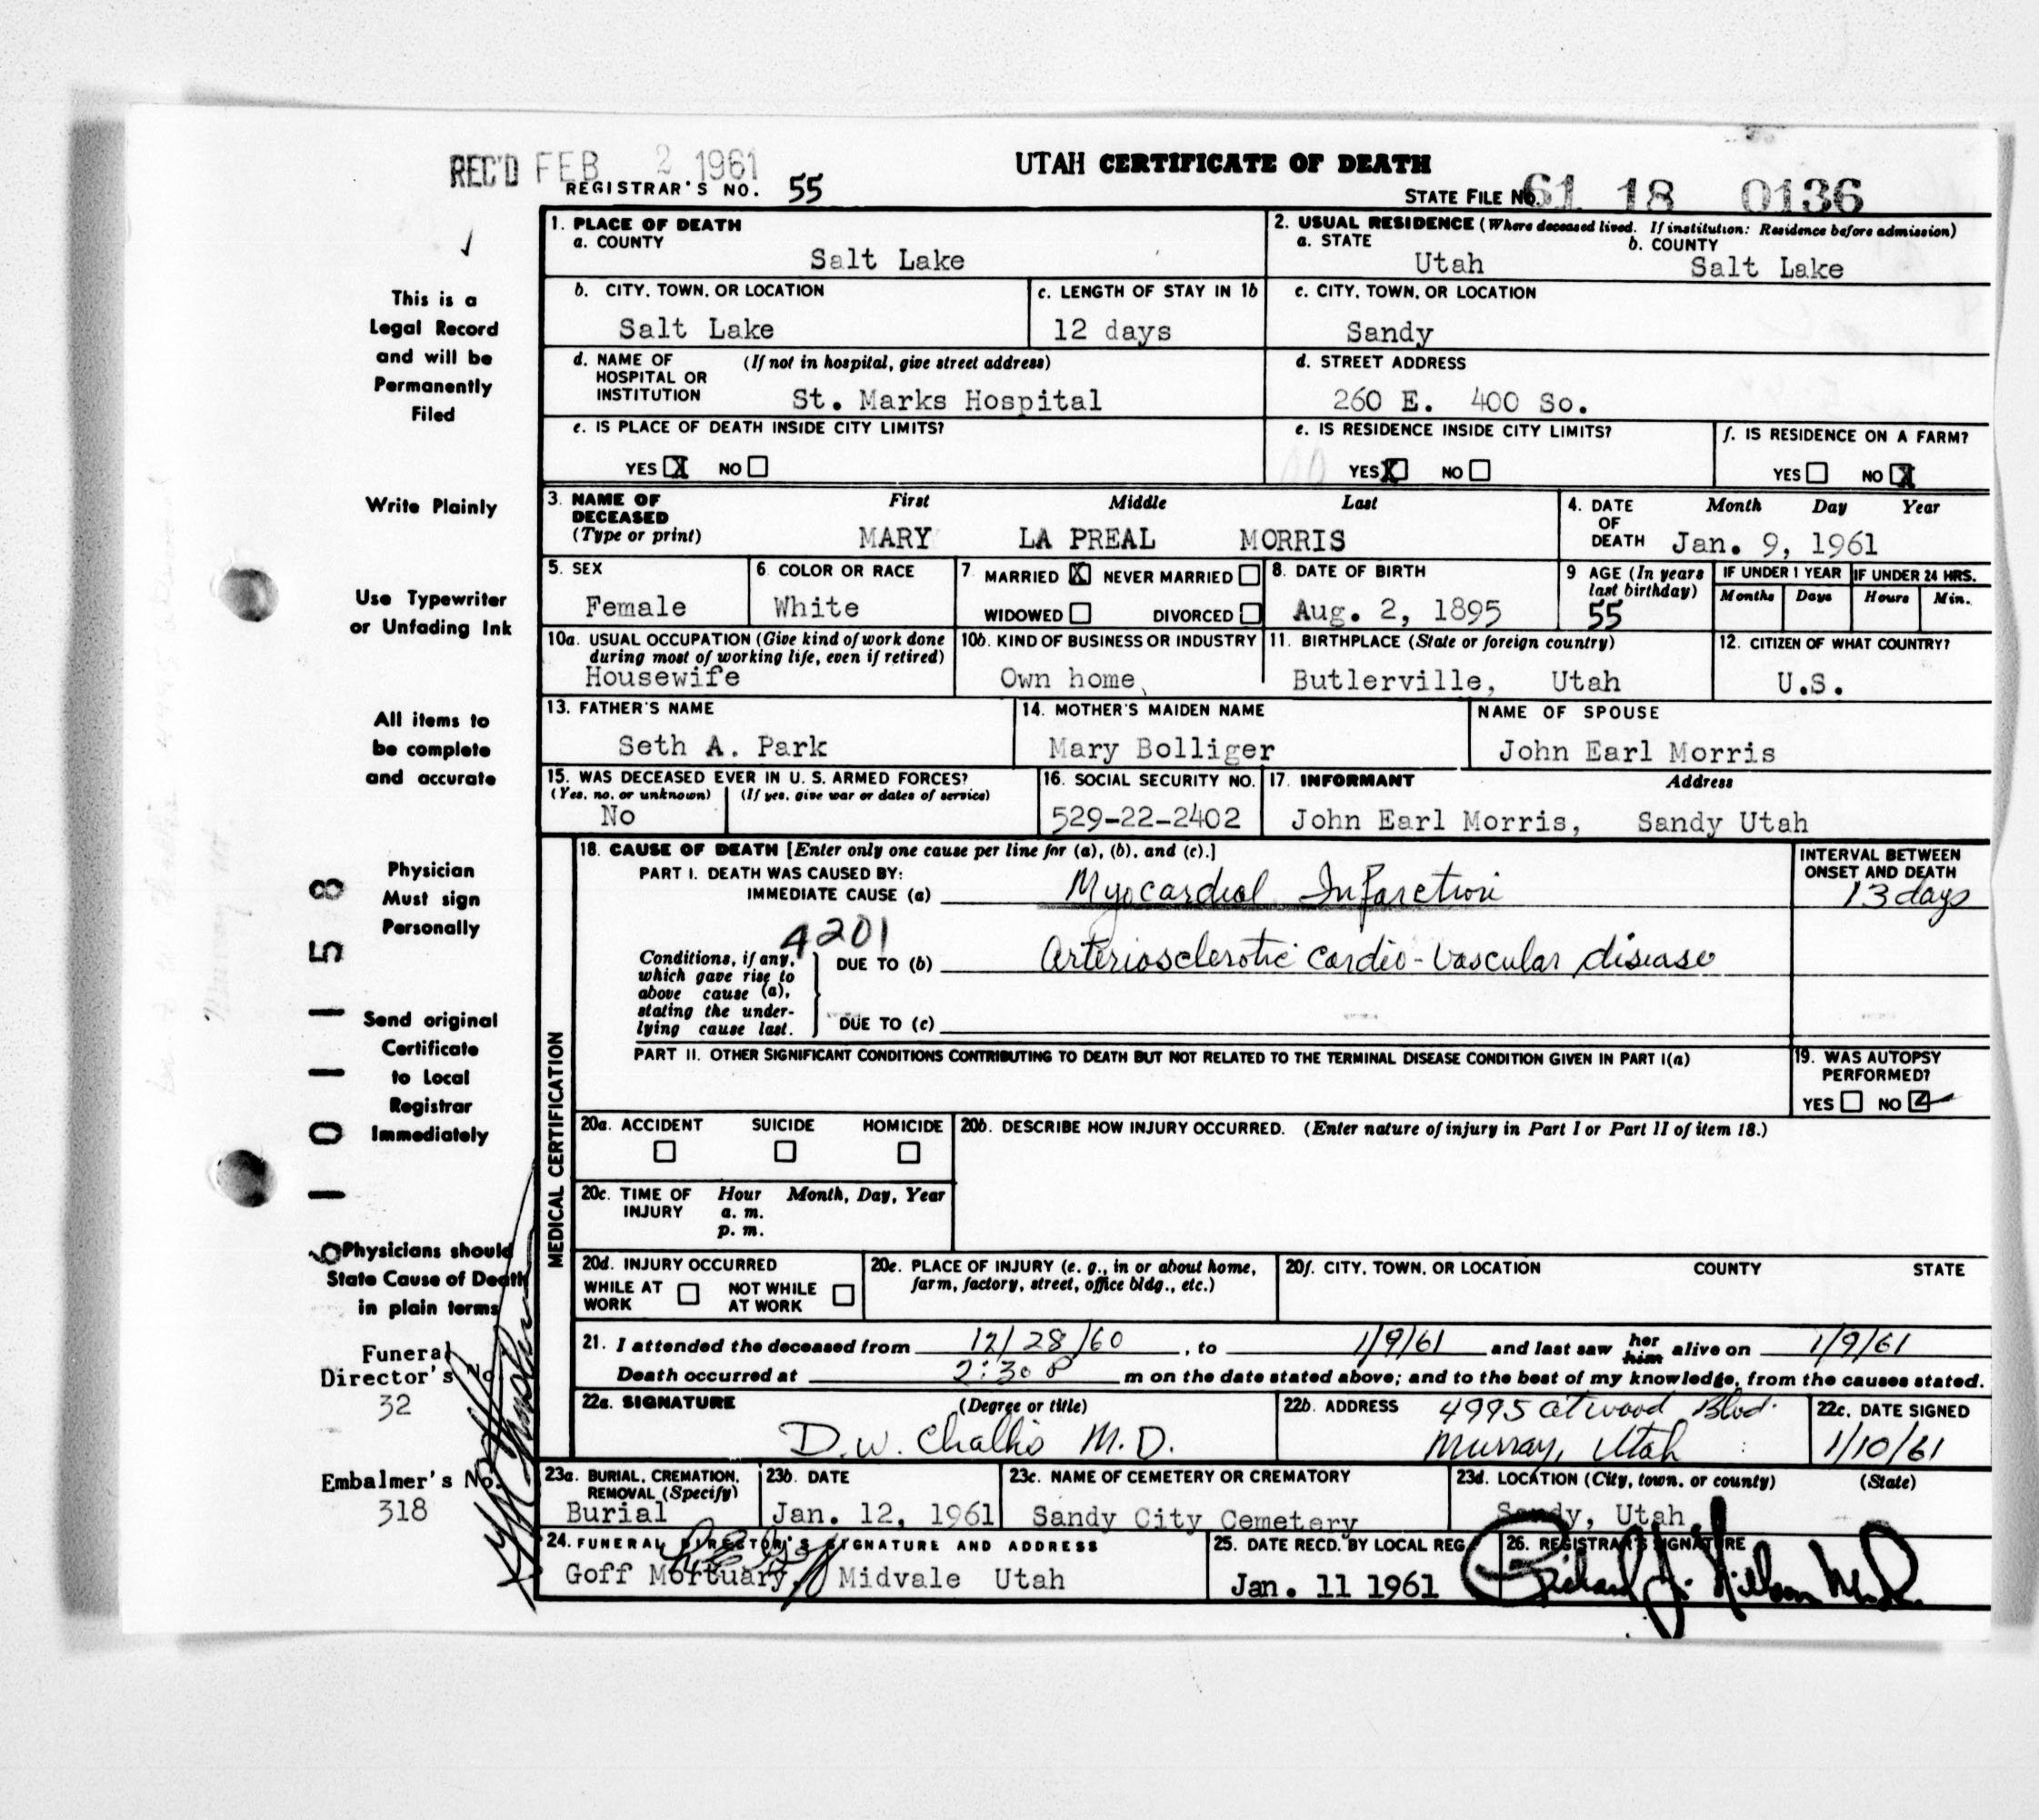 REC'D FEB 2 1961
UTAH CERTIFICATE OF DEATH
REGISTRAR'S NO. 55
STATE FILE NO. 61 18 0136
This is a Legal Record and will be Permanently Filed
Write Plainly
Use Typewriter or Unfading Ink
All items to be complete and accurate
Physician Must sign Personally
Send original Certificate to Local Registrar Immediately
Physicians should State Cause of Death in plain terms
Funeral Director's No.
32
Embalmer's No.
318
1. PLACE OF DEATH
a. COUNTY
Salt Lake
2. USUAL RESIDENCE (Where deceased lived. If institution: Residence before admission)
a. STATE
Utah
b. COUNTY
Salt Lake
b. CITY, TOWN, OR LOCATION
Salt Lake
c. LENGTH OF STAY IN 1b
12 days
c. CITY, TOWN, OR LOCATION
Sandy
d. NAME OF HOSPITAL OR INSTITUTION (If not in hospital, give street address)
St. Marks Hospital
d. STREET ADDRESS
260 E. 400 So.
e. IS PLACE OF DEATH INSIDE CITY LIMITS?
YES X NO
e. IS RESIDENCE INSIDE CITY LIMITS?
YES X NO
f. IS RESIDENCE ON A FARM?
YES NO X
3. NAME OF DECEASED (Type or print)
First Middle Last
MARY LA PREAL MORRIS
4. DATE OF DEATH
Month Day Year
Jan. 9, 1961
5. SEX
Female
6. COLOR OR RACE
White
7. MARRIED X NEVER MARRIED
WIDOWED DIVORCED
8. DATE OF BIRTH
Aug. 2, 1895
9 AGE (In years last birthday)
55
IF UNDER 1 YEAR
Months Days
IF UNDER 24 HRS.
Hours Min.
10a. USUAL OCCUPATION (Give kind of work done during most of working life, even if retired)
Housewife
10b. KIND OF BUSINESS OR INDUSTRY
Own home
11. BIRTHPLACE (State or foreign country)
Butlerville, Utah
12. CITIZEN OF WHAT COUNTRY?
U.S.
13. FATHER'S NAME
Seth A. Park
14. MOTHER'S MAIDEN NAME
Mary Bolliger
NAME OF SPOUSE
John Earl Morris
15. WAS DECEASED EVER IN U. S. ARMED FORCES?
(Yes, no, or unknown) (If yes, give war or dates of service)
No
16. SOCIAL SECURITY NO.
529-22-2402
17. INFORMANT Address
John Earl Morris, Sandy Utah
MEDICAL CERTIFICATION
18. CAUSE OF DEATH [Enter only one cause per line for (a), (b), and (c).]
PART I. DEATH WAS CAUSED BY:
IMMEDIATE CAUSE (a) Myocardial Infarction
INTERVAL BETWEEN ONSET AND DEATH
13 days
4201
Conditions, if any, which gave rise to above cause (a), stating the underlying cause last.
DUE TO (b) Arteriosclerotic Cardio-Vascular disease
DUE TO (c)
PART II. OTHER SIGNIFICANT CONDITIONS CONTRIBUTING TO DEATH BUT NOT RELATED TO THE TERMINAL DISEASE CONDITION GIVEN IN PART I(a)
19. WAS AUTOPSY PERFORMED?
YES NO
20a. ACCIDENT SUICIDE HOMICIDE
20b. DESCRIBE HOW INJURY OCCURRED. (Enter nature of injury in Part I or Part II of item 18.)
20c. TIME OF INJURY Hour Month, Day, Year
a. m.
p. m.
20d. INJURY OCCURRED
WHILE AT WORK NOT WHILE AT WORK
20e. PLACE OF INJURY (e. g., in or about home, farm, factory, street, office bldg., etc.)
20f. CITY, TOWN, OR LOCATION COUNTY STATE
21. I attended the deceased from 12/28/60, to 1/9/61 and last saw her him alive on 1/9/61
Death occurred at 2:30 P m on the date stated above; and to the best of my knowledge, from the causes stated.
22a. SIGNATURE (Degree or title)
D.W. Challis M.D.
22b. ADDRESS 4995 Atwood Blvd.
Murray, Utah
22c. DATE SIGNED
1/10/61
23a. BURIAL, CREMATION, REMOVAL (Specify)
Burial
23b. DATE
Jan. 12, 1961
23c. NAME OF CEMETERY OR CREMATORY
Sandy City Cemetery
23d. LOCATION (City, town, or county) (State)
Sandy, Utah
24. FUNERAL DIRECTOR'S SIGNATURE AND ADDRESS
Goff Mortuary, Midvale Utah
25. DATE RECD. BY LOCAL REG.
Jan. 11 1961
26. REGISTRAR'S SIGNATURE